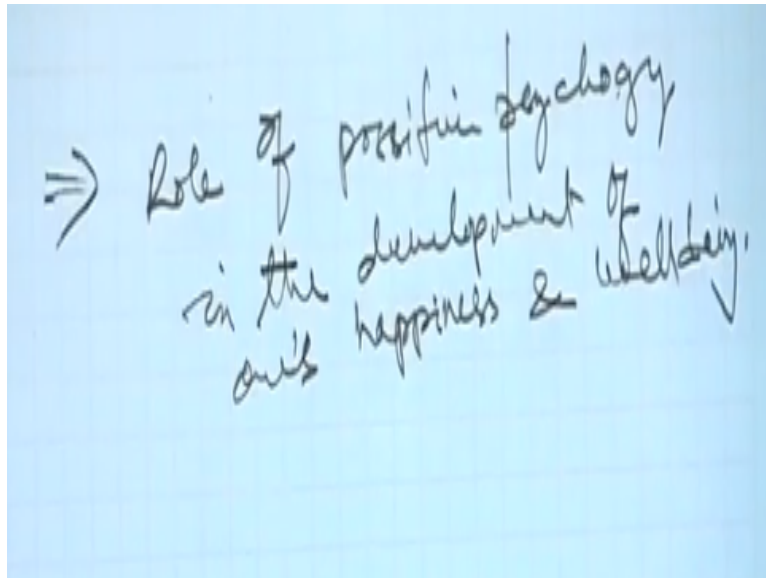 ⇒ Role of positive psychogy
in the development of
one's happiness & wellbeing.